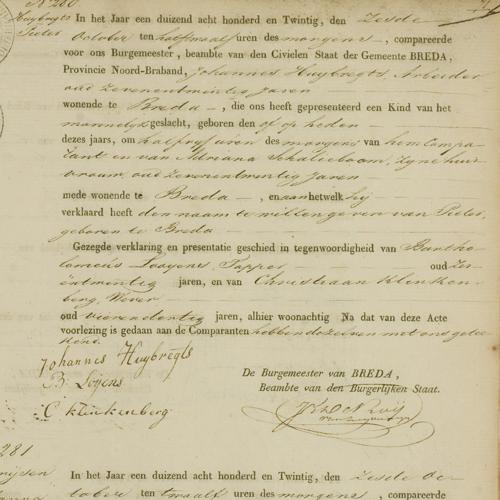 N° 280
Huybregts
Pieter
In het Jaar een duizend acht honderd en Twintig, den Zesde
October ten half twaalf uren des morgens, compareerde
voor ons Burgemeester, beambte van den Civielen Staat der Gemeente BREDA,
Provincie Noord-Braband, Johannes Huybregts Arbeider
oud zevenentwintig jaren
wonende te Breda, die ons heeft gepresenteerd een Kind van het
mannelijk geslacht, geboren den of op heden
dezes jaars, om half vyf uren des morgens van hem Compa
rant en van Adriana Schalieboom, Zyne huis
vrouw, oud zevenentwintig jaren
mede wonende te Breda, en aan hetwelk hy
verklaard heeft den naam te willen geven van Pieter,
geboren te Breda
Gezegde verklaring en presentatie geschied in tegenwoordigheid van Bartho
lomeus Looyens Tapper oud
entwintig jaren, en van Christiaan Klinken
berg, Wever
oud vierendertig jaren, alhier woonachtig Na dat van deze Acte
voorlezing is gedaan aan de Comparanten hebben dezelven met ons getee
kend.
Johannes Huybregts
B. Loyens
C Klinkenberg
De Burgemeester van BREDA,
Beambte van den Burgerlijken Staat.
281
In het Jaar een duizend acht honderd en Twintig, den Zesde Oc
tober ten twaalf uren des morgens, compareerde